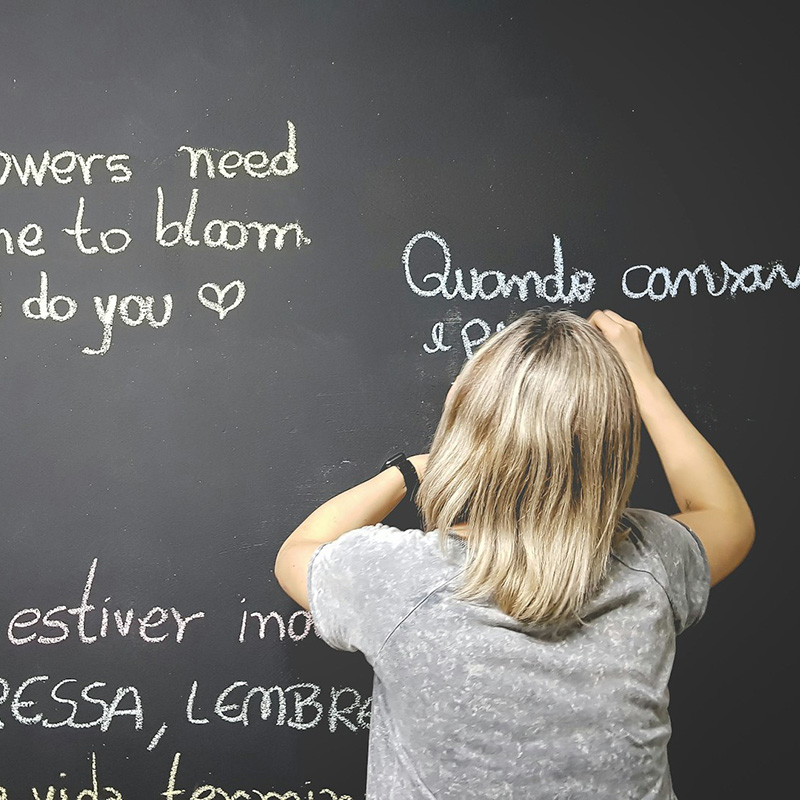 owers need
me to bloom
do you ♡
Quando cansar
e
estiver
RESSA, LEMBRE
vida